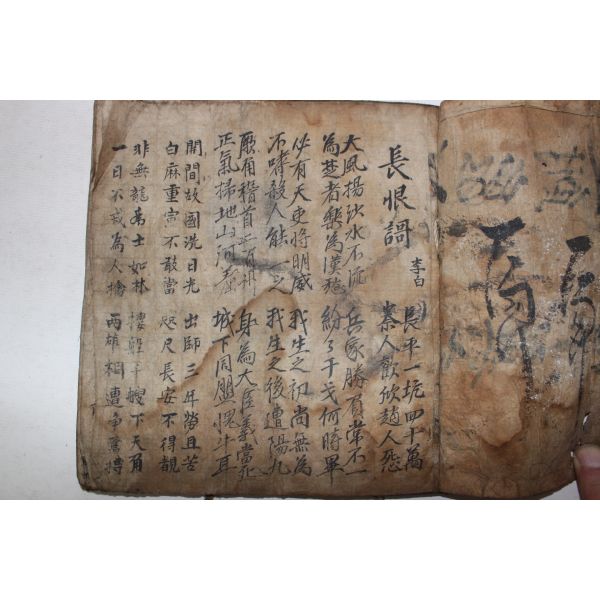 長恨謌 李白
長平一坑四十萬
秦人歡欣趙人怨
大風揚沙水不流
為楚者樂為漢愁
兵家勝負常不一
紛々干戈何時畢
必有天吏將明威
不嗜殺人能一之
我生之初尚無為
我生之後遭陽九
厥角稽首二百州
正氣掃地山河羞
身為大臣義當死
城下同盟愧牛耳
開間故國洗日光
白麻重宣不敢當
出師三年勞且苦
咫尺長安不得覩
非無龍虎士如林
一日不戒為人擒
千艘下天角
両雄相遭爭奮搏